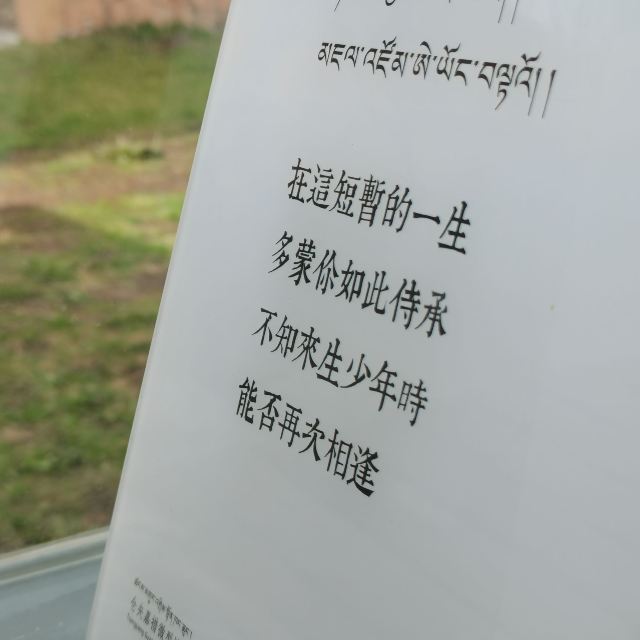 མཇལ་འཛོམ་མི་ཡོང་བལྟའོ།།
在這短暫的一生
多蒙你如此侍承
不知來生少年時
能否再次相逢